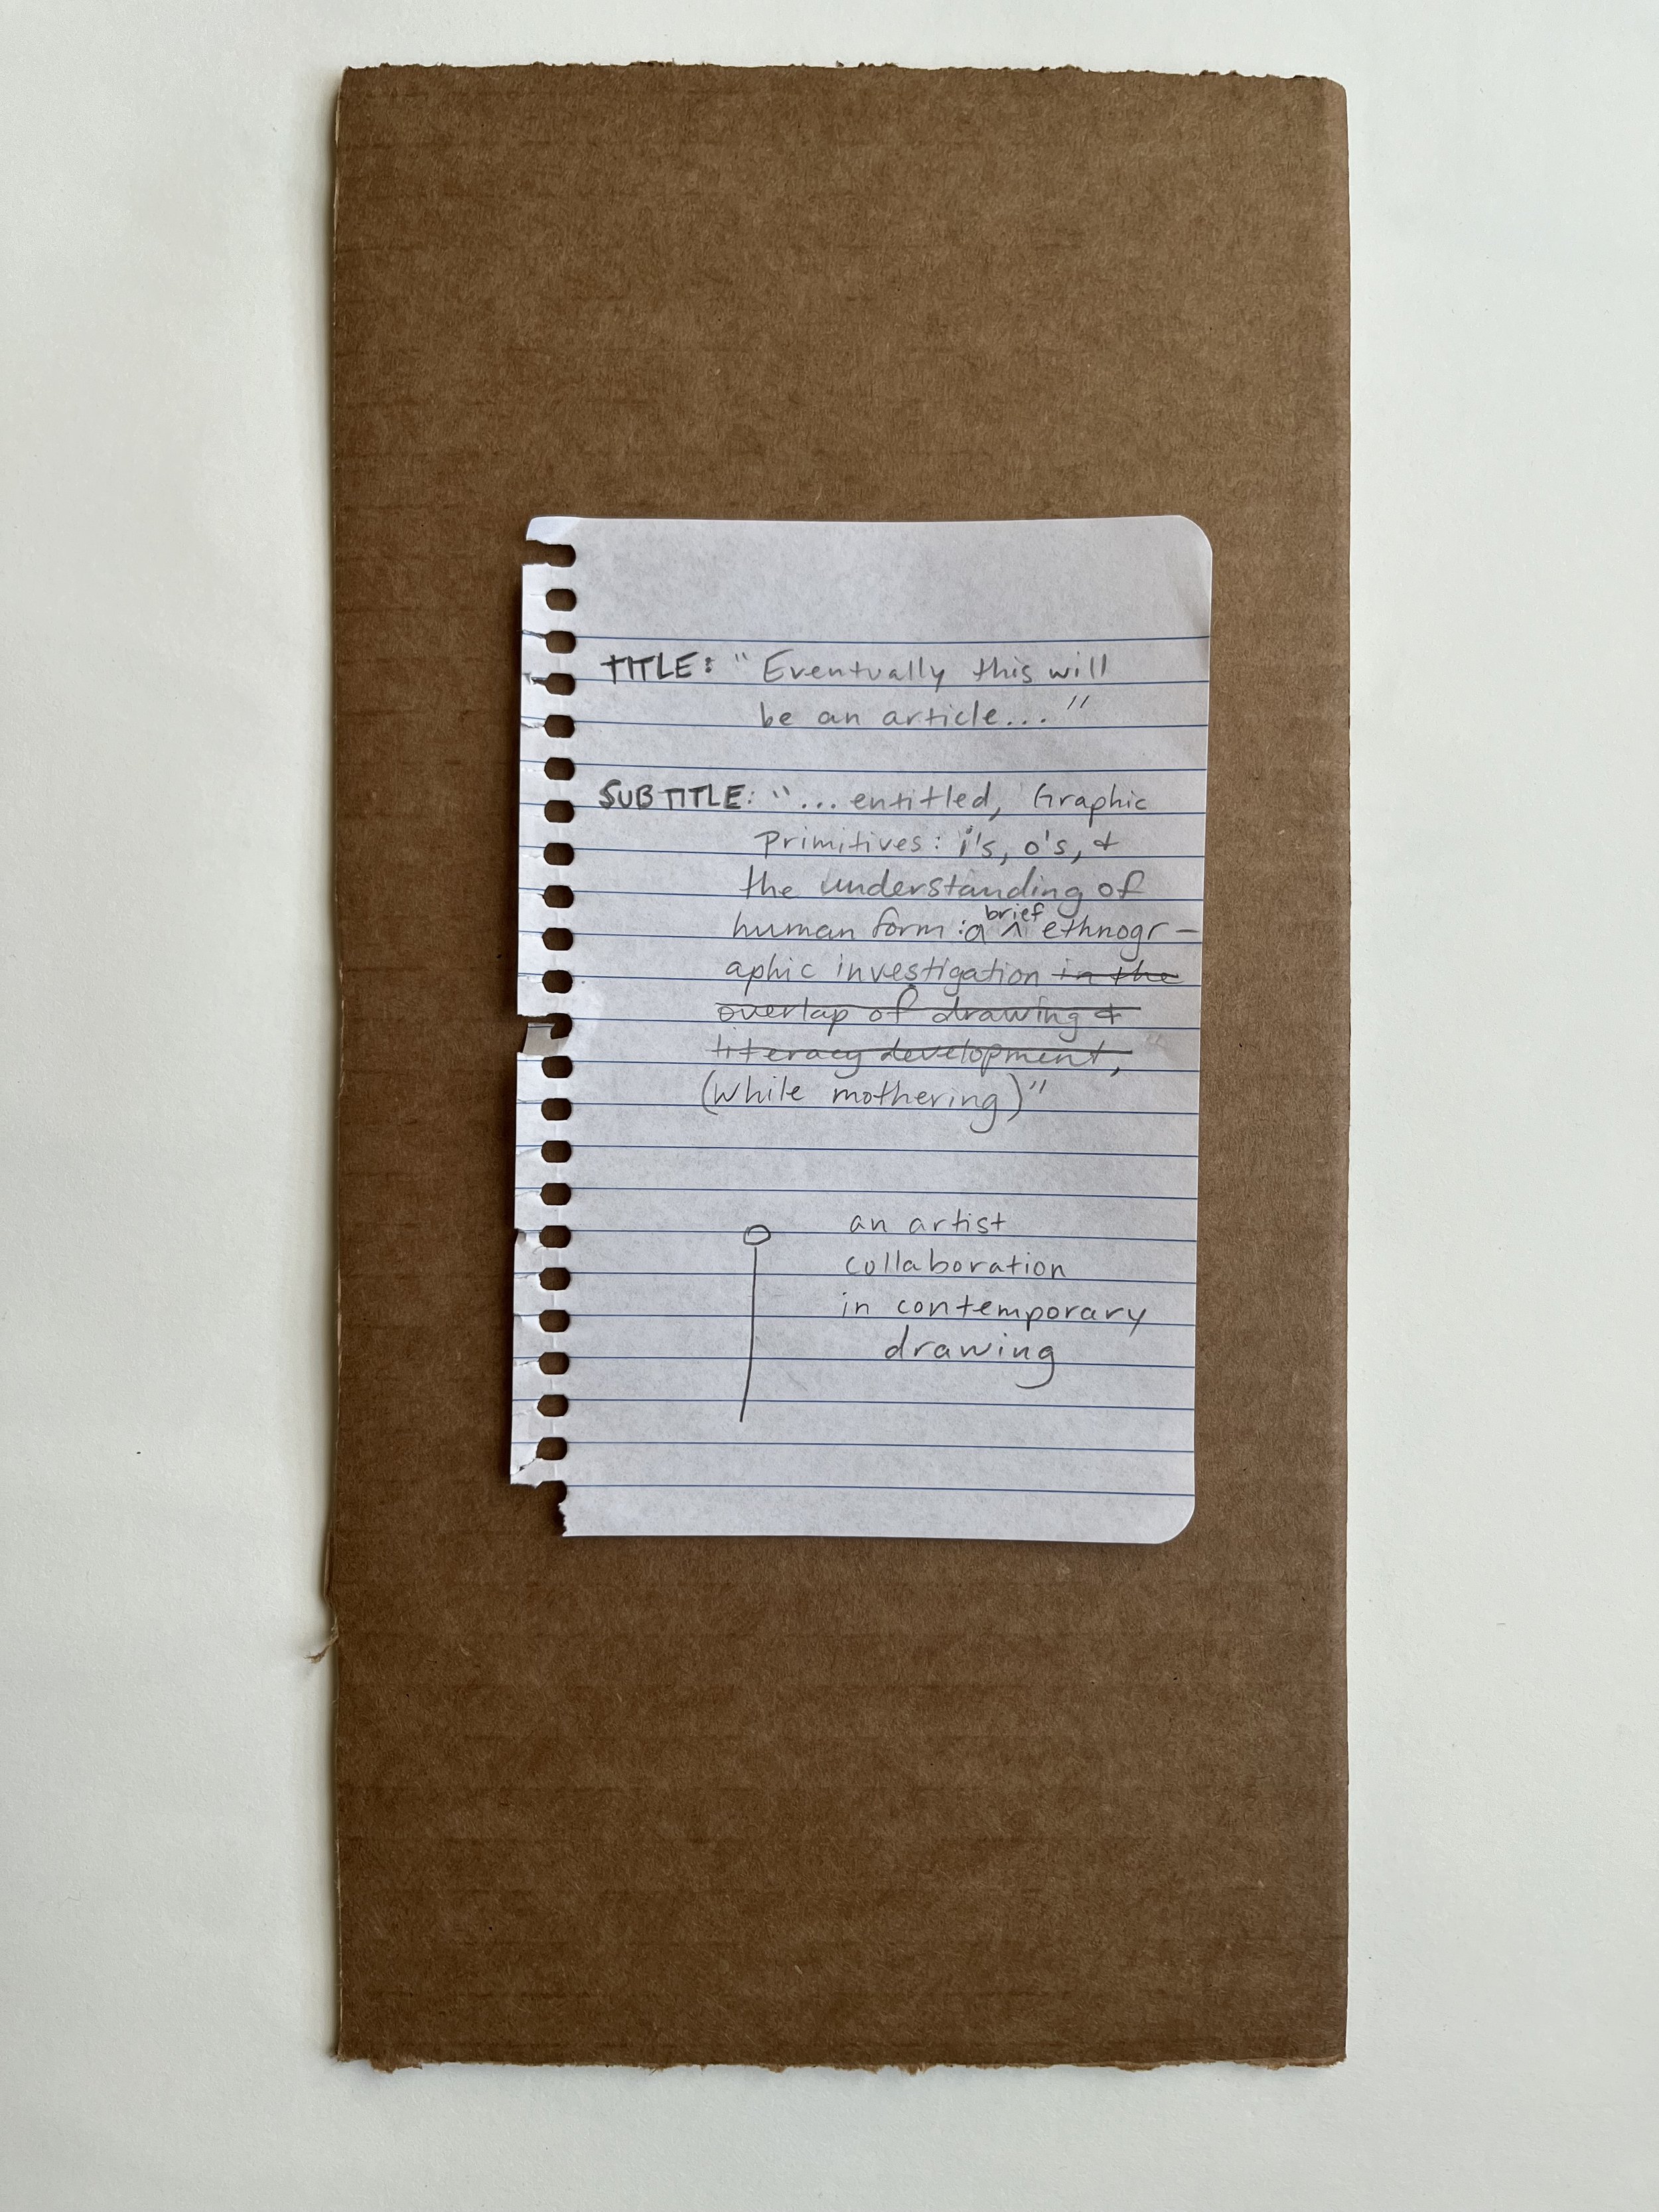 TITLE: "Eventually this will
be an article..."
SUBTITLE: "... entitled, Graphic
Primitives: i's, o's, &
the understanding of
human form: a brief ethnogr-
aphic investigation in the
overlap of drawing &
literacy development,
(while mothering)"
an artist
collaboration
in contemporary
drawing